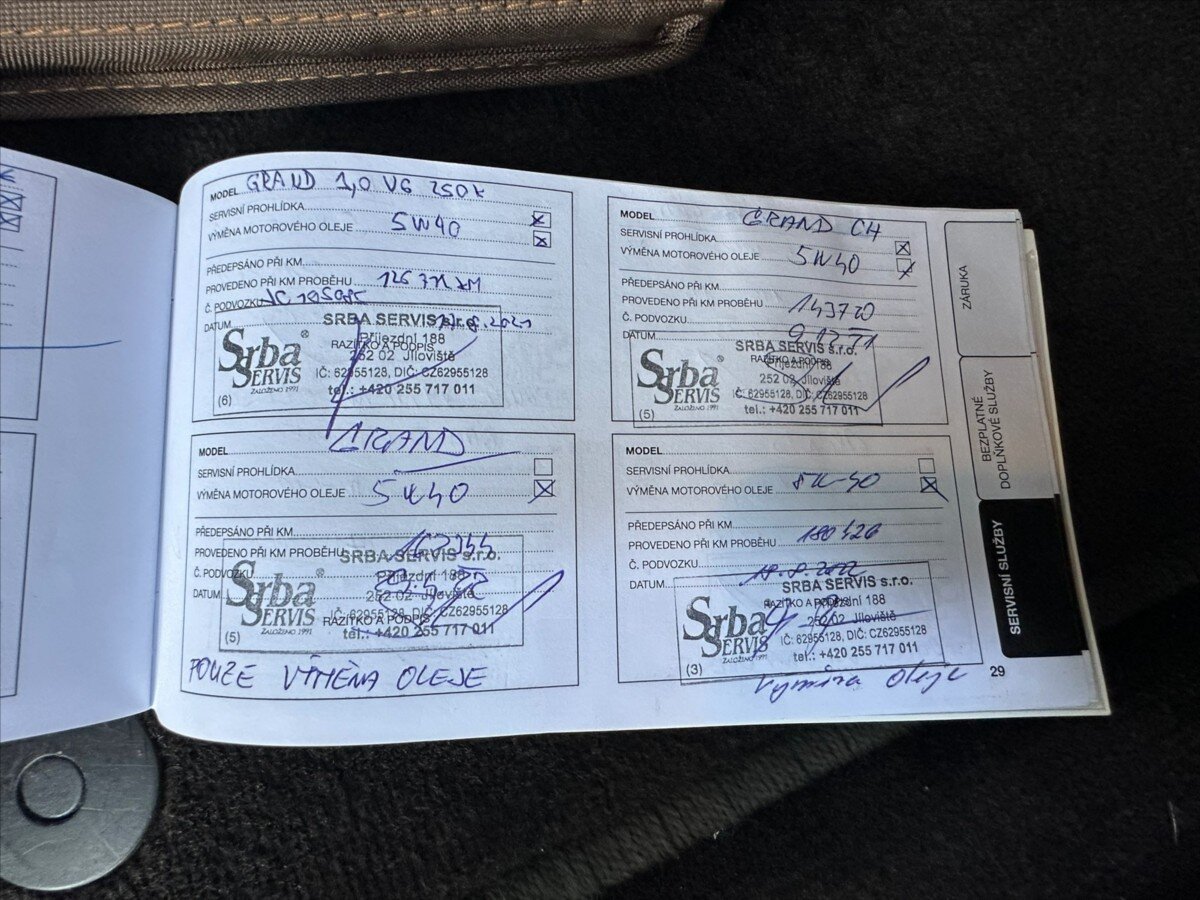 MODEL GRAND
SERVISNÍ PROHLÍDKA
VÝMĚNA MOTOROVÉHO OLEJE 5W40
PŘEDEPSÁNO PŘI KM
PROVEDENO PŘI KM PROBĚHU
Č. PODVOZKU
DATUM
SRBA SERVIS s.r.o.
Příjezdní 188
RAZÍTKO A PODPIS
252 02 Jíloviště
IČ: 62955128, DIČ: CZ62955128
tel.: +420 255 717 011
Srba SERVIS
ZALOŽENO 1991
(6)
MODEL GRAND CH
SERVISNÍ PROHLÍDKA
VÝMĚNA MOTOROVÉHO OLEJE 5W40
PŘEDEPSÁNO PŘI KM
PROVEDENO PŘI KM PROBĚHU
Č. PODVOZKU
DATUM
SRBA SERVIS s.r.o.
RAZÍTKO A PODPIS
Příjezdní 188
252 02 Jíloviště
IČ: 62955128, DIČ: CZ62955128
tel.: +420 255 717 011
Srba SERVIS
ZALOŽENO 1991
(5)
MODEL GRAND
SERVISNÍ PROHLÍDKA
VÝMĚNA MOTOROVÉHO OLEJE 5W40
PŘEDEPSÁNO PŘI KM
PROVEDENO PŘI KM PROBĚHU
Č. PODVOZKU
DATUM
SRBA SERVIS s.r.o.
Příjezdní 188
252 02 Jíloviště
IČ: 62955128, DIČ: CZ62955128
RAZÍTKO A PODPIS
tel.: +420 255 717 011
Srba SERVIS
ZALOŽENO 1991
(5)
POUZE VÝMĚNA OLEJE
MODEL
SERVISNÍ PROHLÍDKA
VÝMĚNA MOTOROVÉHO OLEJE 5W-40
PŘEDEPSÁNO PŘI KM
PROVEDENO PŘI KM PROBĚHU
Č. PODVOZKU
DATUM
SRBA SERVIS s.r.o.
RAZÍTKO A PODPIS
Příjezdní 188
252 02 Jíloviště
IČ: 62955128, DIČ: CZ62955128
tel.: +420 255 717 011
Srba SERVIS
ZALOŽENO 1991
(3)
oleje
29
ZÁRUKA
BEZPLATNÉ
DOPLŇKOVÉ SLUŽBY
SERVISNÍ SLUŽBY